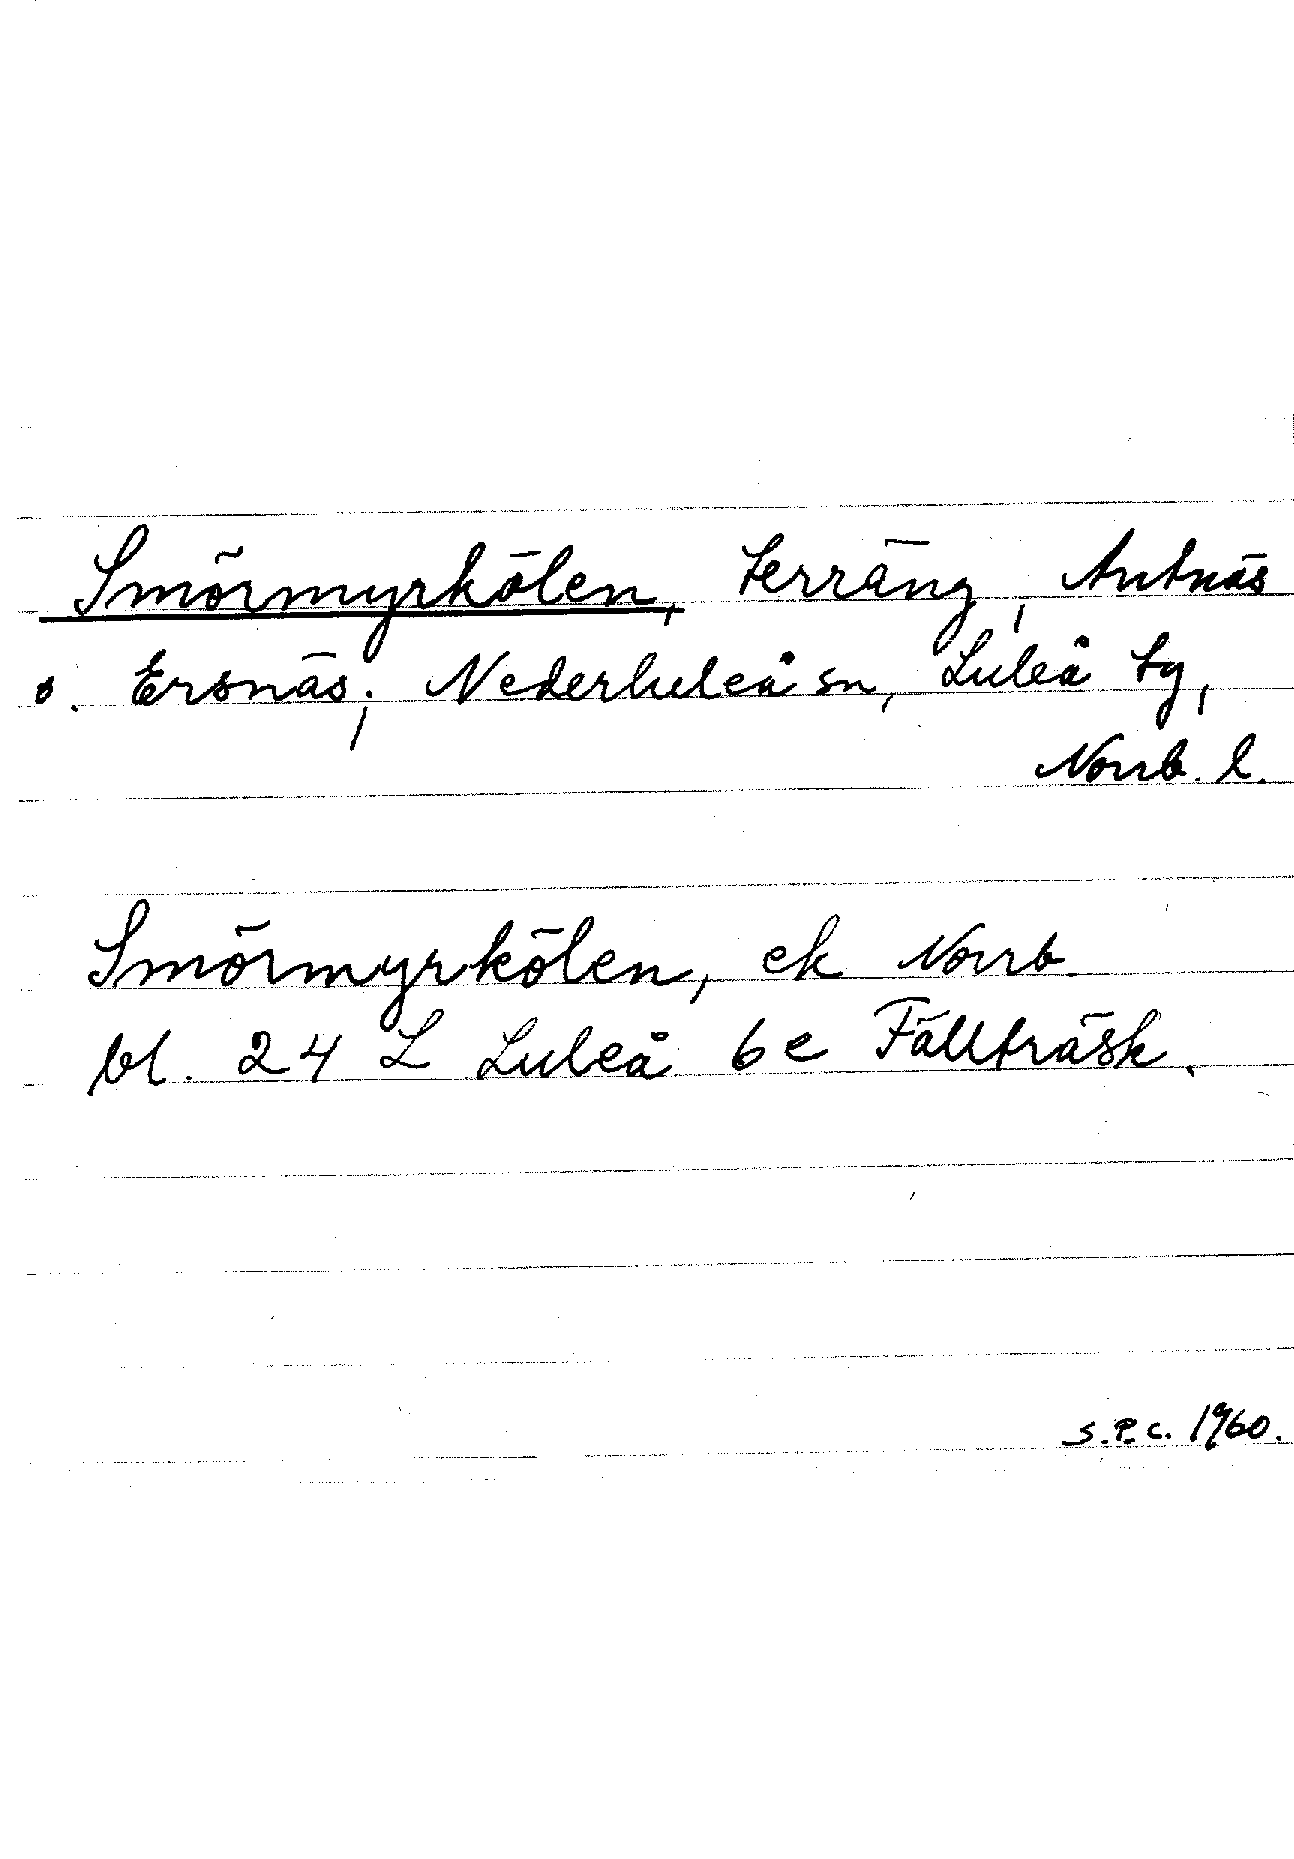 Smörmyrkölen, terräng, Antnäs
o. Ersnäs; Nederluleå sn, Luleå tg,
Norrb. l.
Smörmyrkölen, ek Norrb
bl. 24 L Luleå 6e Fällträsk.
S.P.C. 1960.